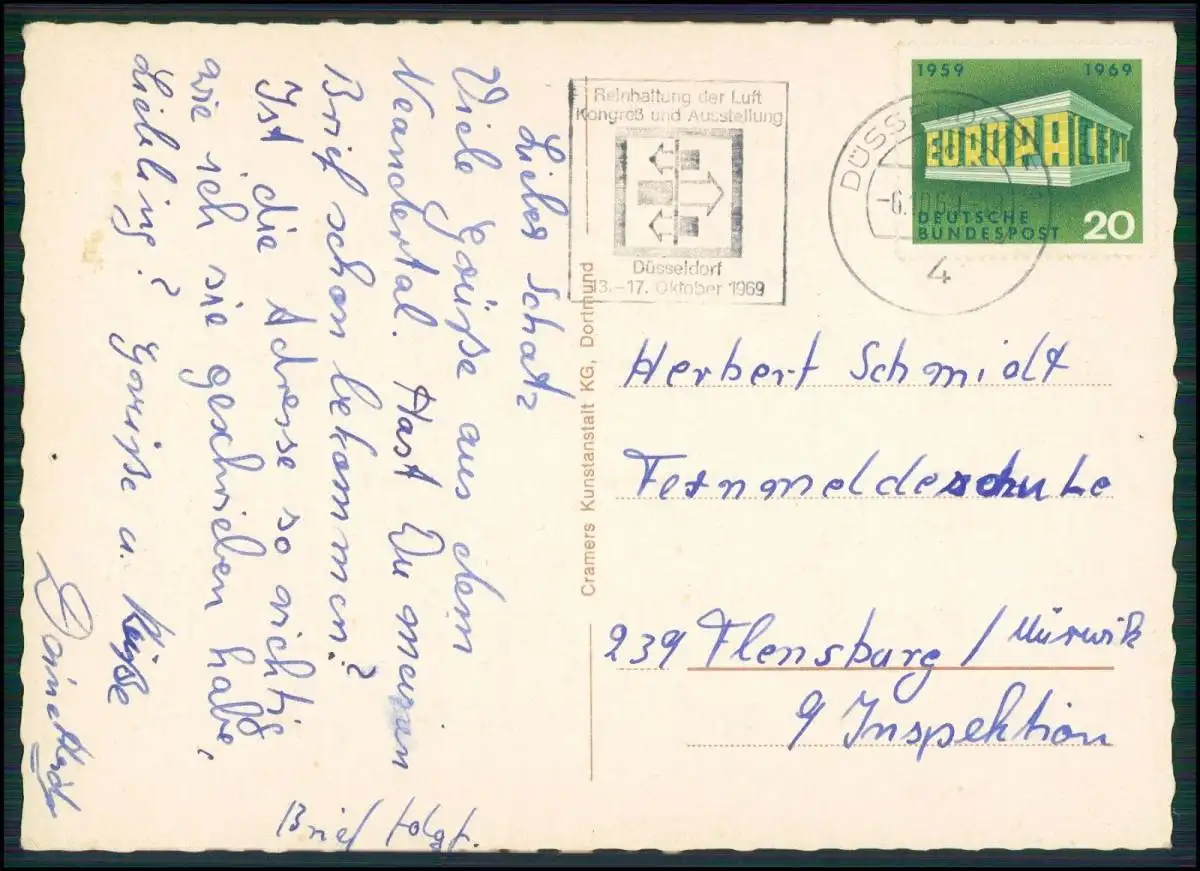 Lieber Schatz
Viele Grüße aus dem
Neandertal. Hast Du meinen
Brief schon bekommen?
Ist die Adresse so richtig
wie ich sie geschrieben habe,
Liebling? Grüße u. Küsse
Brief folgt.
Cramers Kunstanstalt KG, Dortmund
Reinhaltung der Luft
Kongreß und Ausstellung
Düsseldorf
13.–17. Oktober 1969
1959 1969
EUROPA CEPT
DEUTSCHE
BUNDESPOST 20
4
Herbert Schmidt
Fernmeldeschule
239 Flensburg / Mürwik
9 Inspektion